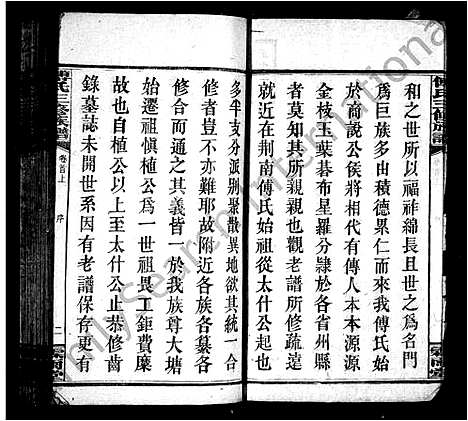 傅氏三修族譜
和之世所以福祚綿長且世之爲名門
爲巨族多由積德累仁而來我傅氏始
於商說公侯將相代有傳人本本源源
金枝玉葉碁布星羅分隸於各省州縣
者莫知其所親也觀老譜所修疏遠
就近在荆南傅氏始祖從太什公起也
多半支分派别聚散異地欲其統一合
修者豈不亦難耶故附近各族各纂各
修合而通之其義皆一於我族尊大塘
始遷祖慎植公為一世祖畏工鉅費糜
故也自植公以上至太什公止恭修齒
錄墓誌未開世系因有老譜保存更有
傅氏三修族譜
卷首上
序
二
MySearch International